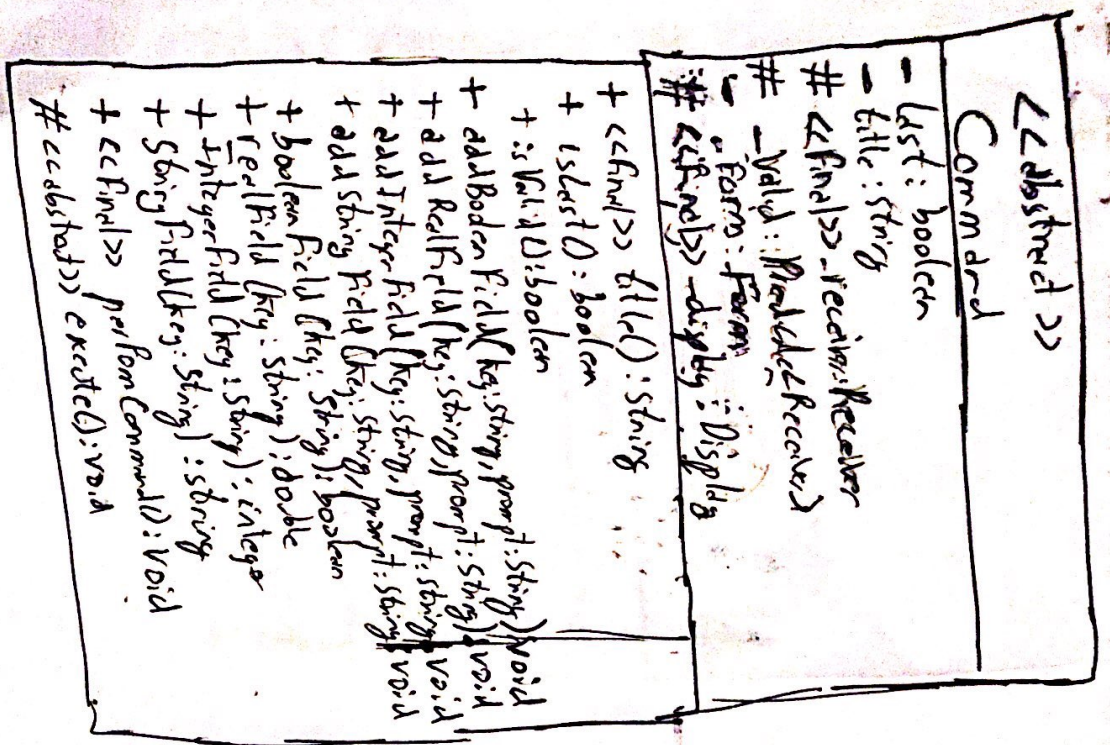 <<abstract>>
Command
- last: boolean
- title: string
# <<final>> _receiver: Receiver
# _valid: Predicate<Receiver>
- _form: Form
# <<final>> _display: Display
+ <<final>> title(): string
+ isLast(): boolean
+ isValid(): boolean
+ addBooleanField(key: string, prompt: string): void
+ addRealField(key: string, prompt: string): void
+ addIntegerField(key: string, prompt: string): void
+ addStringField(key: string, prompt: string): void
+ booleanField(key: string): boolean
+ realField(key: string): double
+ integerField(key: string): integer
+ stringField(key: string): string
+ <<final>> performCommand(): void
# <<abstract>> execute(): void